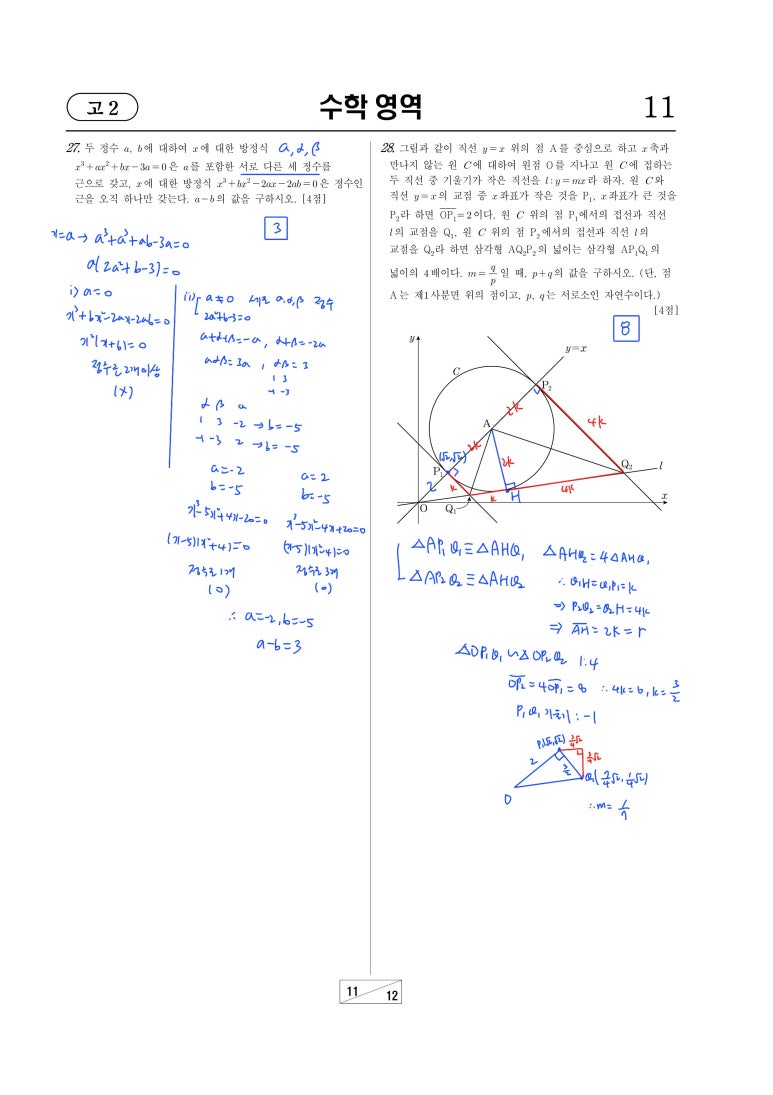 고 2
수학 영역
11
27. 두 정수 a, b에 대하여 x에 대한 방정식 a, α, β
x³+ax²+bx-3a=0은 a를 포함한 서로 다른 세 정수를
근으로 갖고, x에 대한 방정식 x³+bx²-2ax-2ab=0은 정수인
근을 오직 하나만 갖는다. a-b의 값을 구하시오. [4점]
3
x=a → a³+a³+ab-3a=0
a(2a²+b-3)=0
i) a=0
x³+bx²-2ax-2ab=0
x²(x+b)=0
정수근 2개이상
(×)
ii) a≠0 세근 a, α, β 정수
2a²+b-3=0
a+α+β=-a, α+β=-2a
aαβ=3a, αβ=3
1 3
-1 -3
α β a
1 3 -2 → b=-5
-1 -3 2 → b=-5
a=-2
b=-5
x³-5x²+4x-20=0
(x-5)(x²+4)=0
정수근 1개
(○)
a=2
b=-5
x³-5x²-4x+20=0
(x-5)(x²-4)=0
정수근 3개
∴ a=-2, b=-5
a-b=3
28. 그림과 같이 직선 y=x 위의 점 A를 중심으로 하고 x축과
만나지 않는 원 C에 대하여 원점 O를 지나고 원 C에 접하는
두 직선 중 기울기가 작은 직선을 l: y=mx라 하자. 원 C와
직선 y=x의 교점 중 x좌표가 작은 것을 P₁, x좌표가 큰 것을
P₂라 하면 OP₁=2이다. 원 C 위의 점 P₁에서의 접선과 직선
l의 교점을 Q₁, 원 C 위의 점 P₂에서의 접선과 직선 l의
교점을 Q₂라 하면 삼각형 AQ₂P₂의 넓이는 삼각형 AP₁Q₁의
넓이의 4배이다. m=q/p일 때, p+q의 값을 구하시오. (단, 점
A는 제1사분면 위의 점이고, p, q는 서로소인 자연수이다.)
[4점]
8
y
y=x
C
P₂
2k
4k
A
2k
(√2,√2)
2k
P₁
Q₂
l
2
k
k
4k
H
x
O
Q₁
△AP₁Q₁≡△AHQ₁
△AP₂Q₂≡△AHQ₂
△AHQ₂=4△AHQ₁
∴ Q₁H=Q₁P₁=k
⇒ P₂Q₂=Q₂H=4k
⇒ AH=2k=r
△OP₁Q₁∽△OP₂Q₂ 1:4
OP₂=4OP₁=8 ∴ 4k=6, k=3/2
P₁Q₁ 기울기: -1
P₁(√2,√2)
3/4√2
3/4√2
2
3/2
Q₁(7/4√2, 1/4√2)
O
∴ m=1/7
11
12